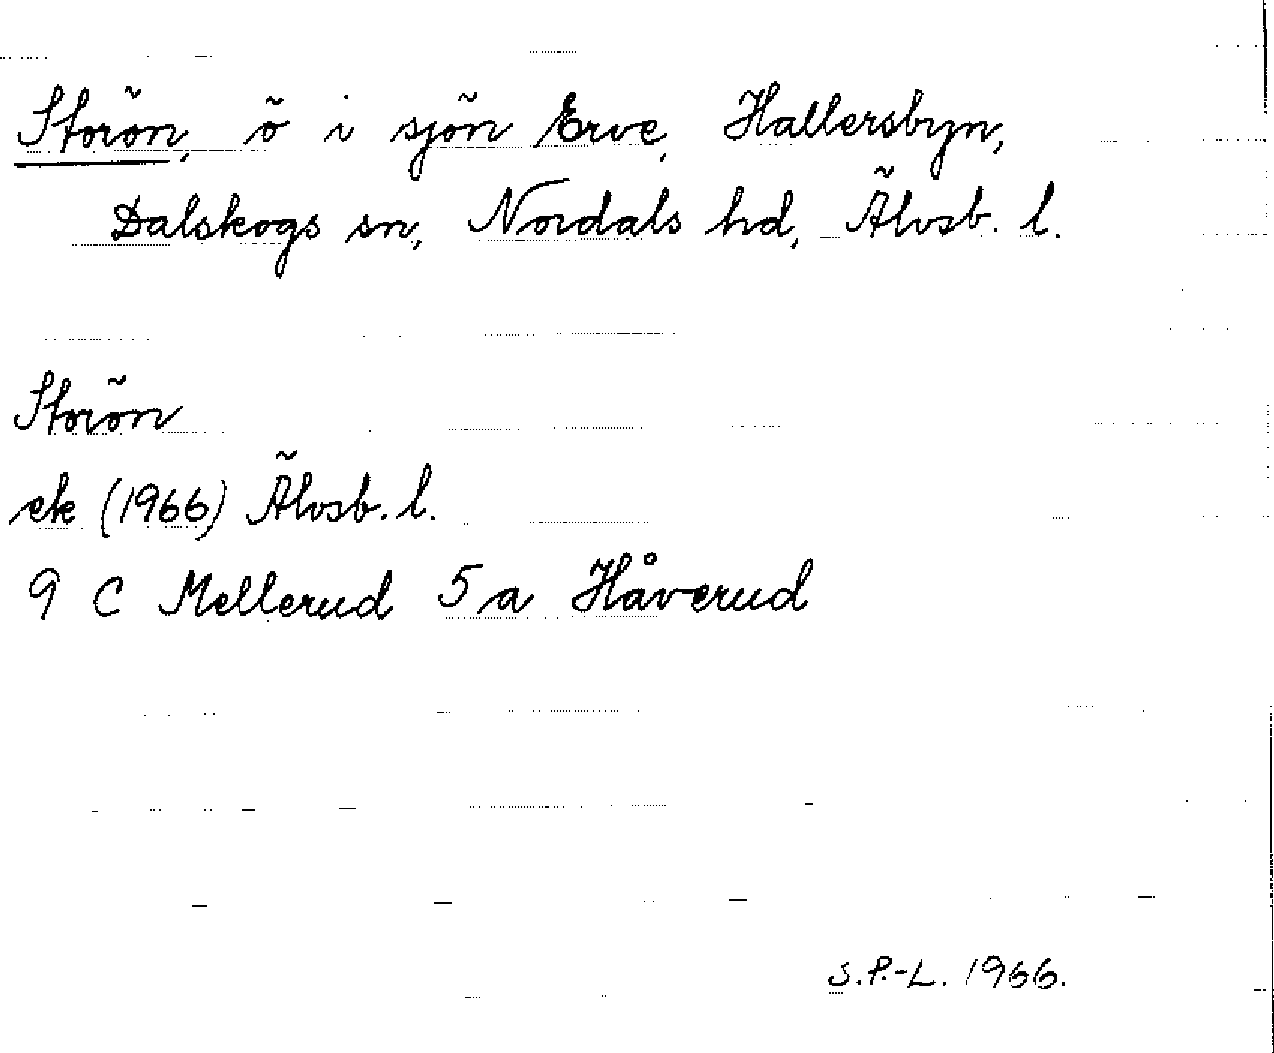 Storön, ö i sjön Erve, Hallersbyn,
Dalskogs sn, Nordals hd, Älvsb. l.
Storön
ek (1966) Älvsb. l.
9 C Mellerud 5 a Håverud
S.P.-L. 1966.